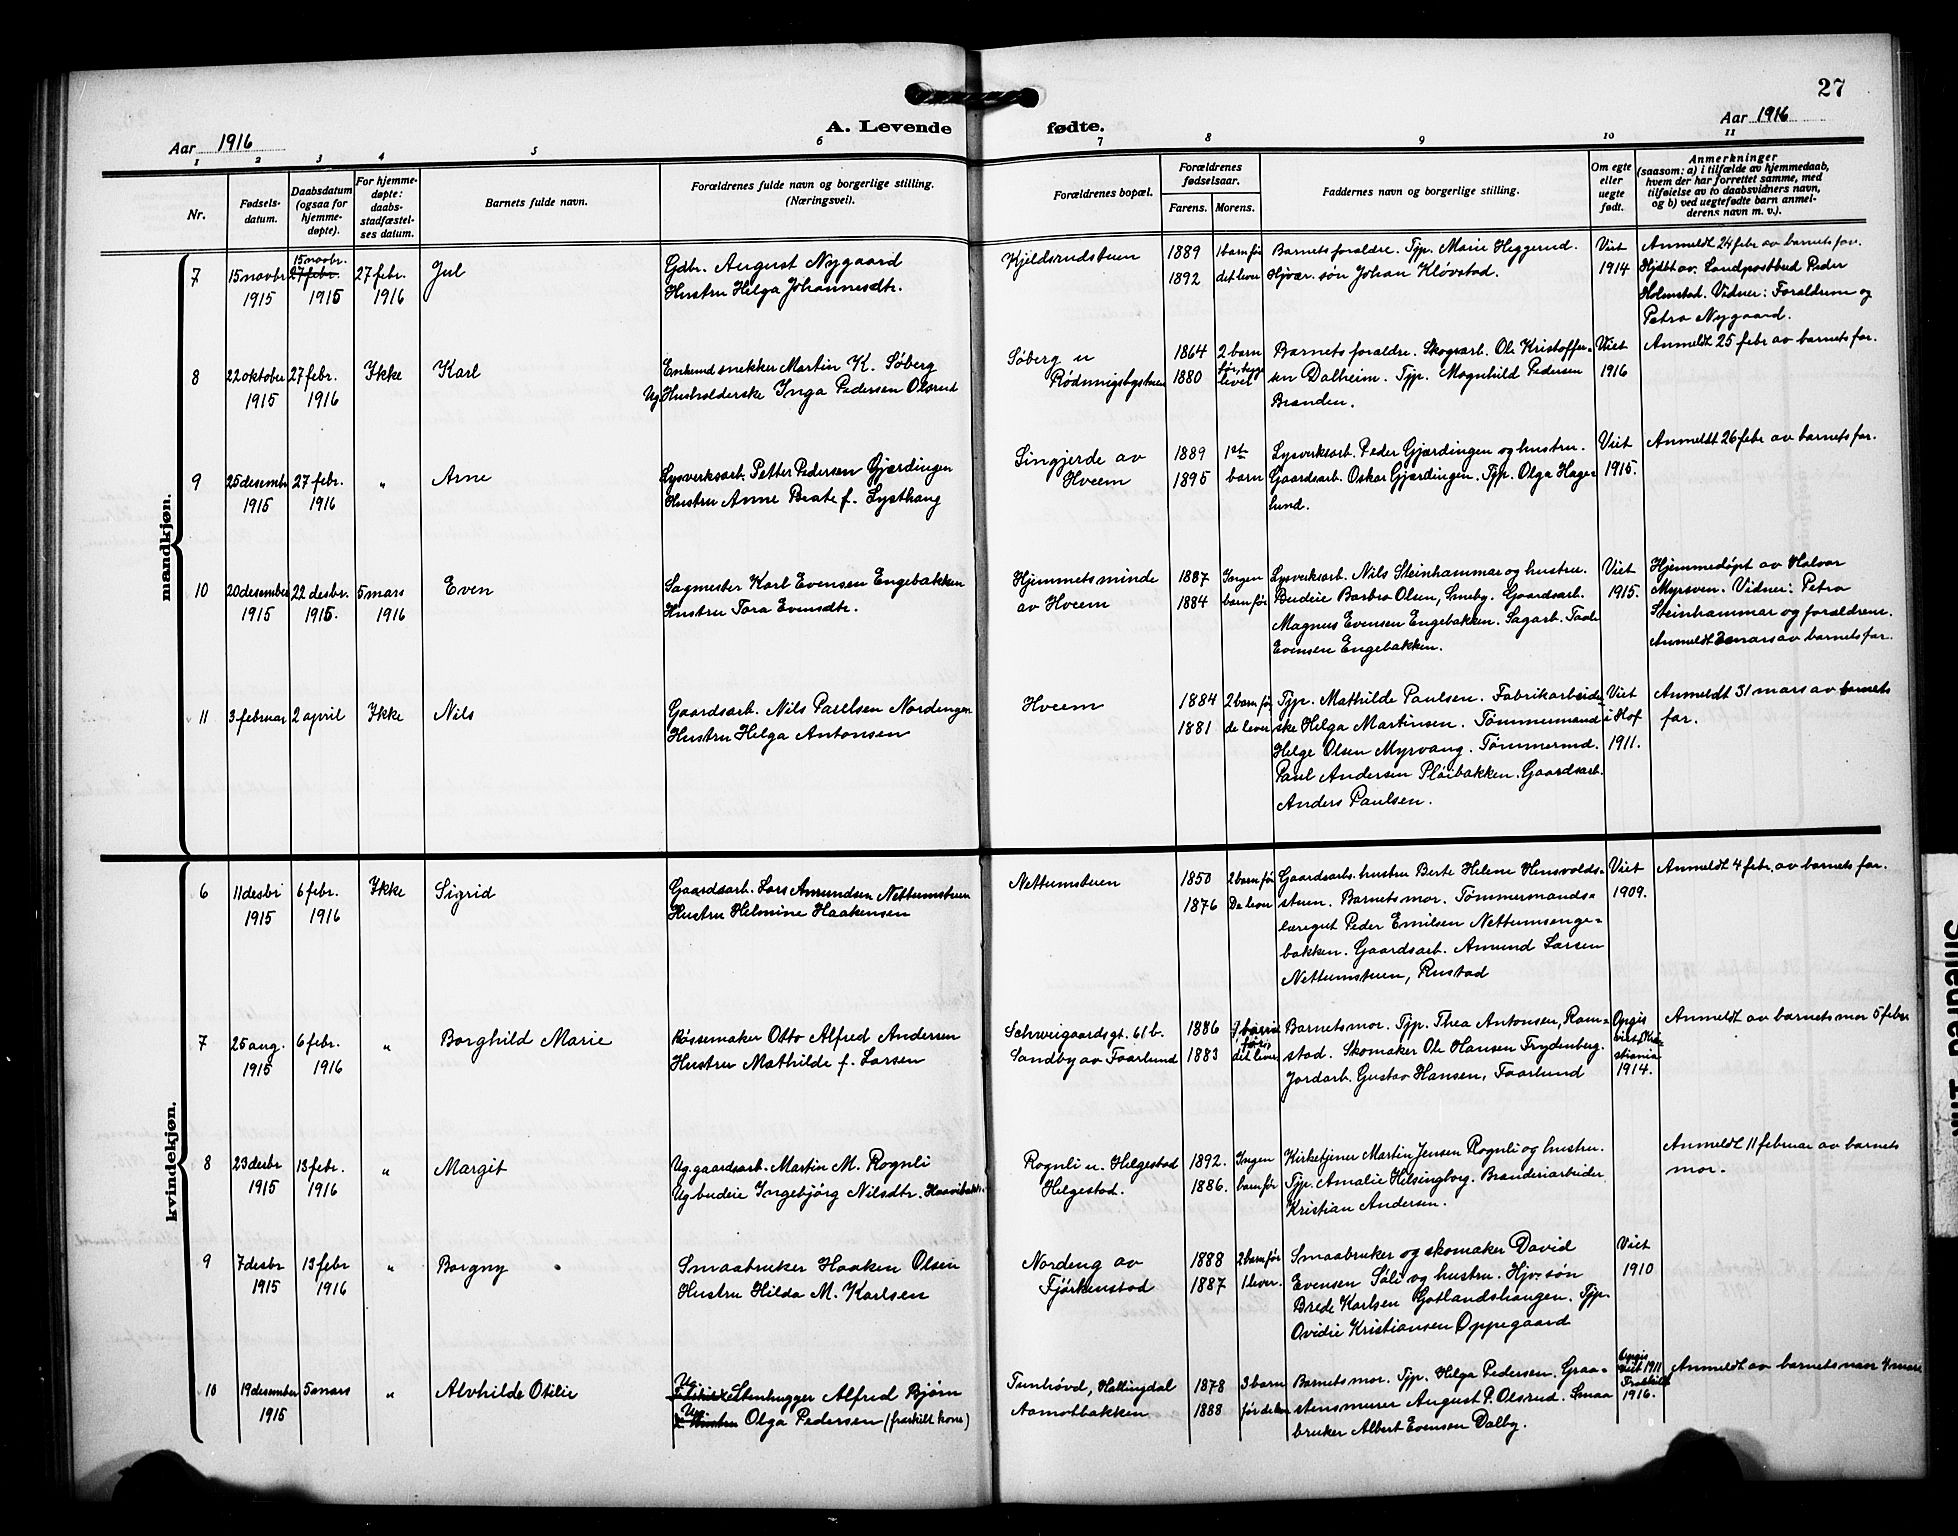 27
Aar 1916
A. Levende fødte.
Aar 1916
1 2 3 4 5 6 7 8 9 10 11
Nr.
Fødsels-
datum.
Daabsdatum
(ogsaa for
hjemme-
døpte).
For hjemme-
døpte:
daabs-
stadfæstel-
ses datum.
Barnets fulde navn.
Forældrenes fulde navn og borgerlige stilling.
(Næringsvei).
Forældrenes bopæl.
Forældrenes
fødselsaar.
Farens. Morens.
Faddernes navn og borgerlige stilling.
Om egte
eller
uegte
født.
Anmerkninger
(saasom: a) i tilfælde av hjemmedaab,
hvem der har forrettet samme, med
tilføielse av to daabsvidners navn,
og b) ved uegtefødte barn anmel-
derens navn m. v.).
mandkjøn.
7
15 novbr
1915
15 novbr.
27 febr.
1915
27 febr.
1916
Jul
Gdbr. August Nygaard
Hustru Helga Johannesdtr.
Kjeldsrudstuen
1889
1892
1 barn før
det lever
Barnets forældre. Tjp. Marie Heggerud.
Hjvær. søn Johan Kløvstad.
Viet
1914
Anmeldt 24 febr av barnets far.
Hjdøbt av. Landpostbud Peder
Holmstad. Vidner: Forældrene og
Petra Nygaard.
8
22 oktober
1915
27 febr.
1916
Ikke
Karl
Enkemd snekker Martin K. Søberg
Ug Husholderske Inga Pedersen Olsrud
Søberg u
Rødningsbystuen
1864
1880
2 barn
før, begge
levet
Barnets forældre. Skogsarb. Ole Kristoffer-
sen Dalheim. Tjp. Magnhild Pedersen
Branden.
Viet
1916
Anmeldt 25 febr av barnets far.
9
25 desembr
1915
27 febr.
1916
"
Arne
Lysverksarb. Petter Pedersen Gjærdingen
Hustru Anne Beate f. Lysthaug
Lingjerde av
Hveem
1889
1895
1st
barn
Lysverksarb. Peder Gjærdingen og hustru.
Gaardsarb. Oskar Gjærdingen. Tjp. Olga Hage-
lund.
Viet
1915.
Anmeldt 26 febr av barnets far.
10
20 desember
1915
22 desbr.
1915.
5 mars
1916
Even
Sagmester Karl Evensen Engebakken
Hustru Tora Evensdtr.
Hjemmets minde
av Hveem
1887
1884
Ingen
barn før
Lysverksarb. Nils Steinhammar og hustru.
Budeie Barbra Olsen, Smeby. Gaardsarb.
Magnus Evensen Engebakken. Sagarb. Taale
Evensen Engebakken.
Viet
1915.
Hjemmedøpt av Halvor
Myrsven. Vidner: Petra
Steinhammar og forældrene.
Anmeldt 3 mars av barnets far.
11
3 februar
2 april
Ikke
Nils
Gaardsarb. Nils Paulsen Nordengen
Hustru Helga Antonsen
Hveem
1884
1881
2 barn før
de lever
Tjp. Mathilde Paulsen. Fabrikarbeider-
ske Helga Martinsen. Tømmermand
Helge Olsen Myrvang. Tømmermd.
Paul Andersen Pløibakken. Gaardsarb.
Anders Paulsen.
Viet
i Hof
1911.
Anmeldt 31 mars av barnets
far.
kvindekjøn.
6
11 desbr
1915
6 febr.
1916
Ikke
Sigrid
Gaardsarb. Lars Amundsen Nettumstuen
Hustru Helmine Haakensen
Nettumstuen
1850
1876
2 barn før
De lever
Gaardsarbs. hustru Berte Helene Hensvolds-
stuen. Barnets mor. Tømmermands-
læregut Peder Emilsen Nettumsenge-
bakken. Gaardsarb. Amund Larsen
Nettumstuen, Rustad
Viet
1909.
Anmeldt 4 febr. av barnets far.
7
25 aug.
1915
6 febr.
1916
"
Borghild Marie
Børsemaker Otto Alfred Andersen
Hustru Mathilde f. Larsen
Schweigaardsgt. 61 b.
Sandby av Faarlund
1886
1883
1 barn
før,
det lever
Barnets mor. Tjp. Thea Antonsen, Ram-
stad. Skomaker Ole Hansen Frydenberg.
Jordarb. Gustav Hansen, Faarlund
Opgis
viet, Kri-
stiania
1914.
Anmeldt av barnets mor 5 febr.
8
23 desbr
1915
13 febr.
1916
"
Margit
Ug. gaardsarb. Martin M. Rognli
Ug budeie Ingebjørg Nilsdtr.
Rognli u. Helgestad
Helgestad.
1892.
1886.
Ingen
barn før
Kirketjener Martin Jensen Rognli og hustru.
Tjp. Amalie Helsingborg. Brænderiarbeider
Kristian Andersen.
Anmeldt 11 februar av barnets
mor.
9
7 desbr
1915
13 febr
1916
"
Borgny
Smaabruker Haaken Olsen
Hustru Hilda M. Karlsen
Nordeng av
Fjørkenstad
1888
1887
2 barn før
1 lever.
Smaabruker og skomaker David
Evensen Søli og hustru. Hjv. søn
Brede Karlsen Gotlandshaugen. Tjp.
Ovidie Kristiansen Oppegaard
Viet
1910
10
19 desember
1915
5 mars
"
Alvhilde Otilie
Ug.
Stenhugger Alfred Bjørn
Ug.
Hustru Olga Pedersen (fraskilt kone)
Tunhövd, Hallingdal
Aamotbakken
1878
1888
3 barn
før de lever
Barnets mor. Tjp. Helga Pedersen. Graa-
stensmurer August P. Olsrud. Smaa
bruker Albert Evensen Dalby.
Opgis
viet 1911
Fraskilt
1916.
Anmeldt av barnets mor 4 mars